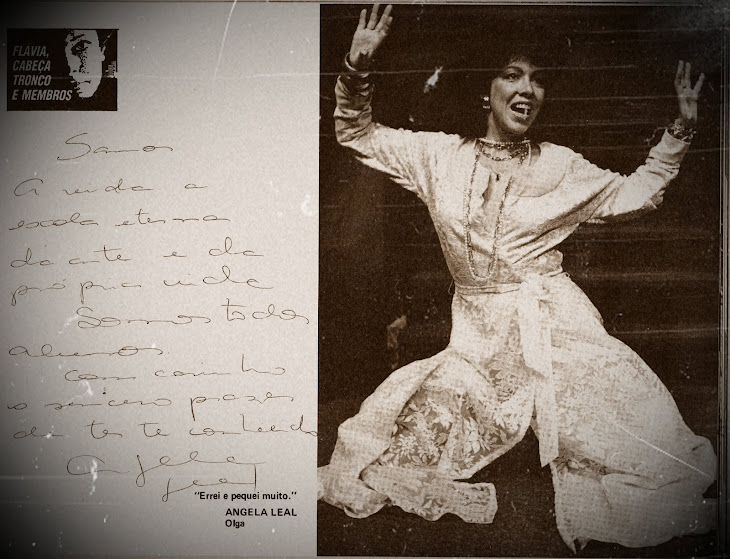 FLAVIA,
CABEÇA
TRONCO
E MEMBROS
A vida a
escola eterna
da arte e da
própria vida
Somos todos
alunos.
Com carinho
o sincero prazer
de ter te conhecido
Angela
Leal
"Errei e pequei muito."
ANGELA LEAL
Olga